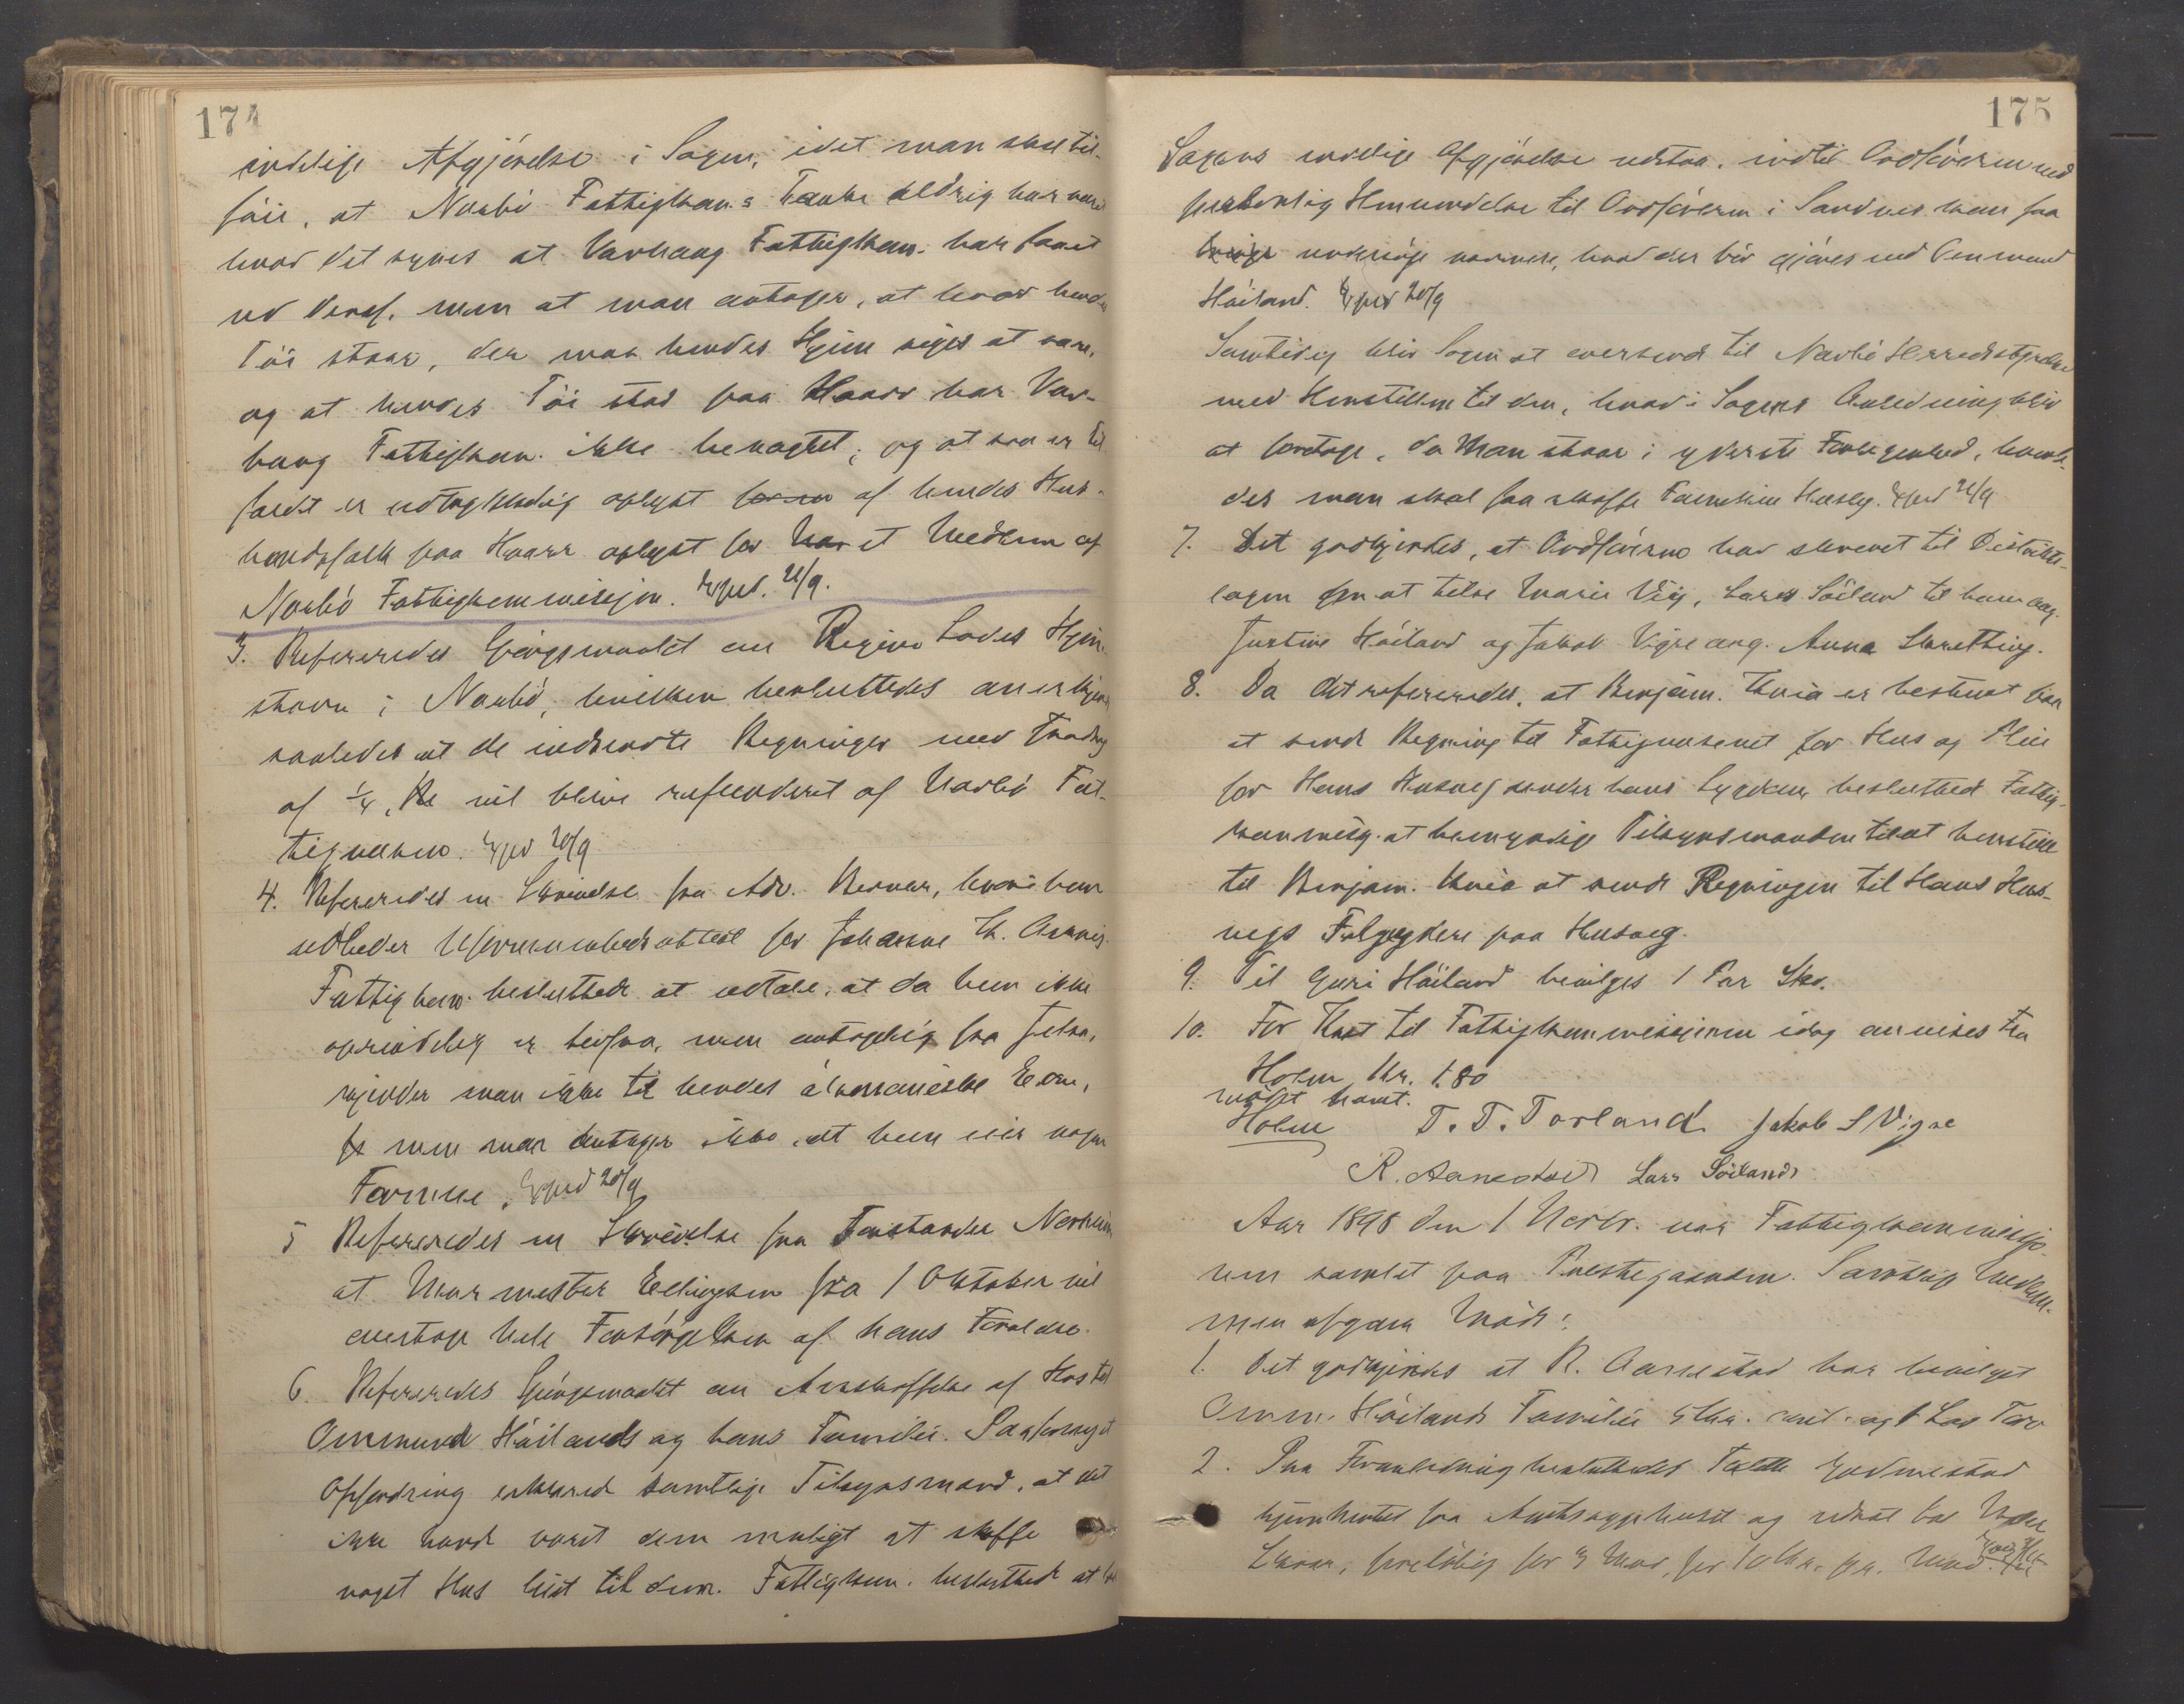 174
endelige Afgjørelse i Sagen, idet man skal til-
føie, at Narbø Fattigkom.s Tanke aldrig har været
hvad det synes at Varhaug Fattigkom. har faaet
ud deraf, men at man antager, at hvor hendes
Tøi staar, der maa hendes Hjem siges at være,
og at hendes Tøi stod paa Haarr har Var-
haug Fattigkom. ikke benægtet, og at saa er til-
fældet er udtrykkelig oplyst af hendes Hus-
bondsfolk paa Haarr oplyst for et Medlem af
Narbø Fattigkommission. Exped. 21/9.
3. Refereredes Spørgsmaalet om Regine Lodes Hjem-
stavn i Narbø, hvilken besluttedes anerkjendt
saaledes at de indsendte Regninger med Fradrag
af 1/4, vil blive refunderet af Narbø Fat-
tigvæsen. Exped 20/9
4. Refereredes en Skrivelse fra Adv. Berner, hvori han
udbeder Uformuenhedsattest for Johanne Th.
Fattigkom. besluttede at udtale, at da hun ikke
oprindelig er herfra, men antagelig fra Jelsa,
kjender man ikke til hendes økonomiske Evne,
men man antager ikke, at hun eier nogen
Formue. Exped 20/9
5 Refereredes en Skrivelse fra Forstander Norheim
at Murmester Ellingsen fra 1 Oktober vil
overtage hele Forsørgelsen af hans Forældre.
6. Refereredes Spørgsmaalet om Anskaffelse af Hus til
Ommund Høilands og hans Familie. Paa
Opfordring erklærede samtlige Tilsynsmænd, at det
ikke havde været dem muligt at skaffe
noget Hus leiet til dem. Fattigkom. besluttede at
175
Sagens endelige Afgjørelse udstaa, indtil Ordføreren ved
personlig Henvendelse til Ordføreren i Sandnes kan faa
undersøge nærmere, hvad der bør gjøres med Ommund
Høiland. Exped 20/9
Samtidig blir Sagen at oversende til Narbø Herredsstyrelse
med Henstillen til den, hvad i Sagens Anledning blir
at foretage, da man staar i yderste Forlegenhed, hvorle-
des man skal faa skaffe Familien Husly. Exped 21/9
7. Det godkjendtes, at Ordføreren har skrevet til Distrikts-
lægen om at tilse Marie Vig, Lars Søiland til ham ang.
Justine Høiland og Jakob Vigre ang. Anna Skretting.
8. Da det refereredes, at Benjam. Kvia er bestemt paa
at sende Regning til Fattigvæsenet for Hus og Pleie
for Hans Husveg under hans Sygdom besluttede Fattig-
kommisj. at bemyndige Tilsynsmanden til at henstille
til Benjam. Kvia at sende Regningen til Hans Hus-
vegs Følgeydere paa Husveg.
9. Til Guri Høiland bevilges 1 Par Sko.
10. For Kost til Fattigkommissionen idag anvises fra
Holm Kr. 1.80
mødt havt.
Holm T. T. Torland Jakob S Vigre
R. Aanestad Lars Søiland
Aar 1898 den 1 Novbr. var Fattigkommissio-
nen samlet paa Prestegaarden. Samtlige Medlem-
mer afgav Møde:
1. Det godkjendes at R. Aanestad har bevilget
Omm. Høilands Familie 5 Kr. og 1 Las Torv
2. Paa Foranledning besluttedes Tolle Godmestad
hjemhentet fra Amtssygehuset og udsat hos
foreløbig for 3 Mdr, for 10 Kr. pr. Maaned.